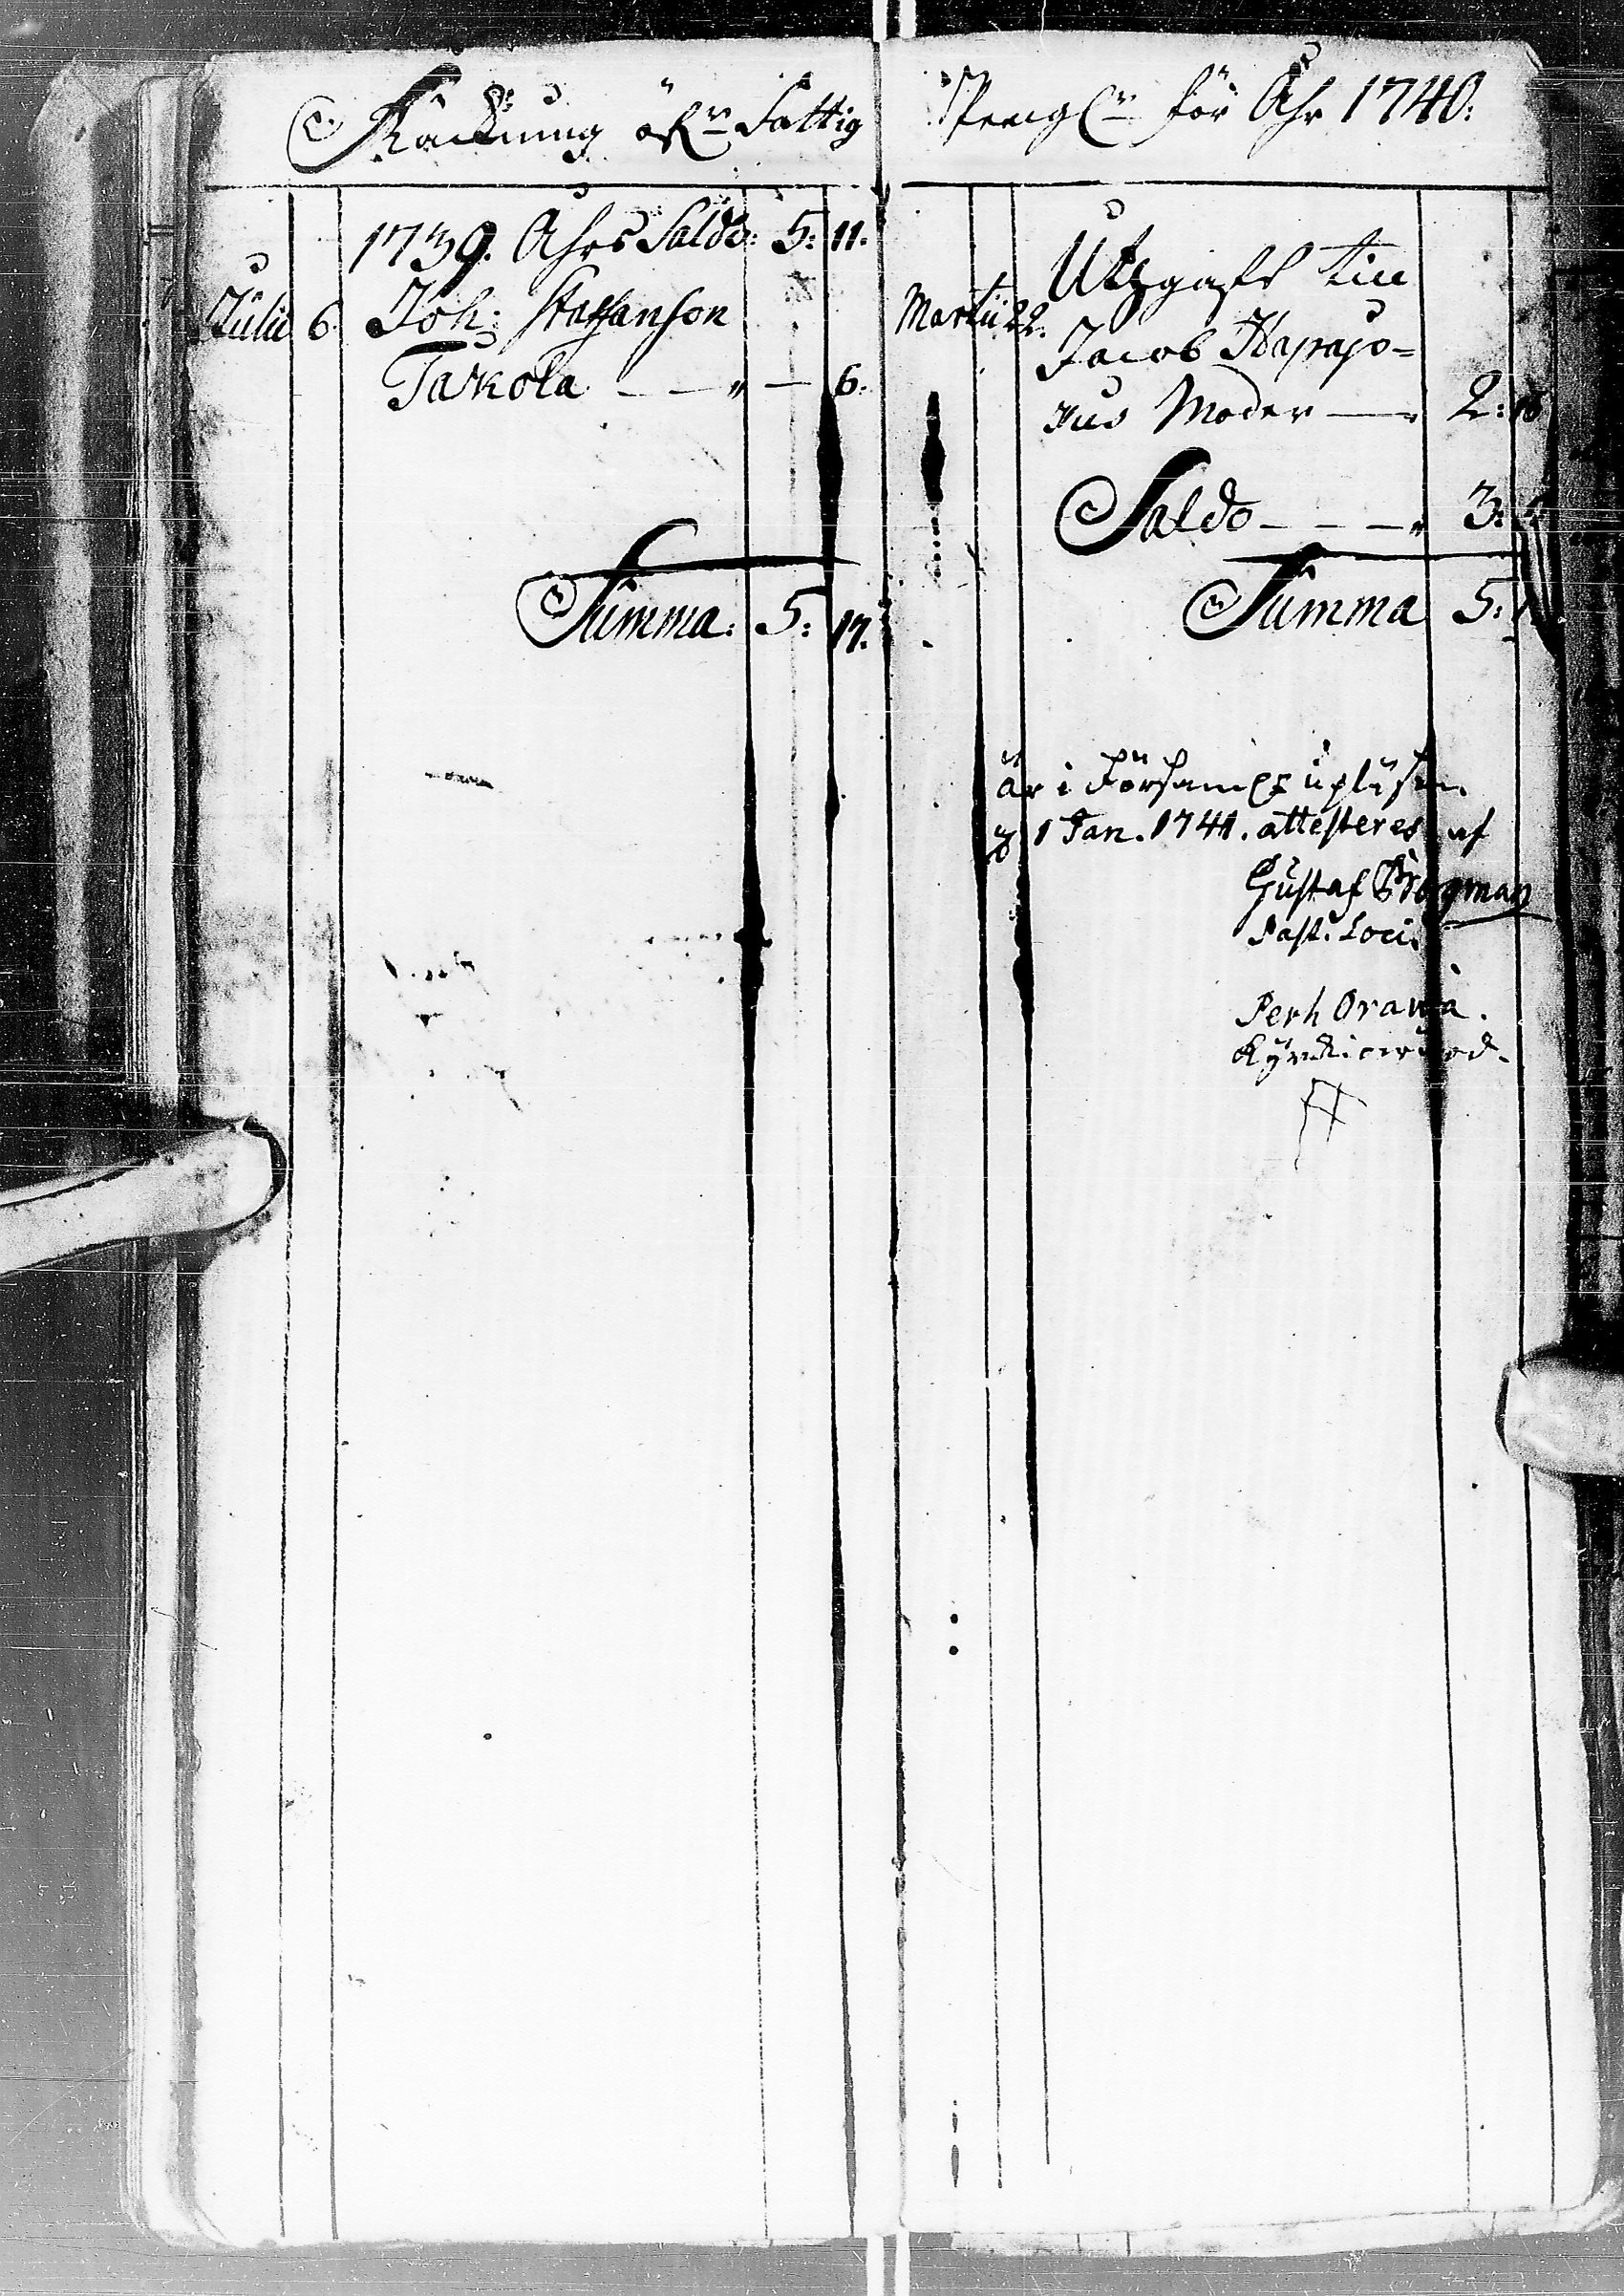 Räckning öfr Fattig Peng:r för Åhr 1740:
1739. Åhrs Saldo: 5: 11.
Julii 6. Joh: Staffanson
Tarkola — — " — 6.
Summa: 5: 17.
Martii 22. Utgafs till
Jacob Haparjo=
kus Moder — 2: 16
Saldo - - - " 3:
Summa 5:
är i Församl: upläsin
d 1 Jan. 1741. attesteres af
Gustaf Brogman
Past. Loci.
Perh Orawa.
Kyrckiowärd.